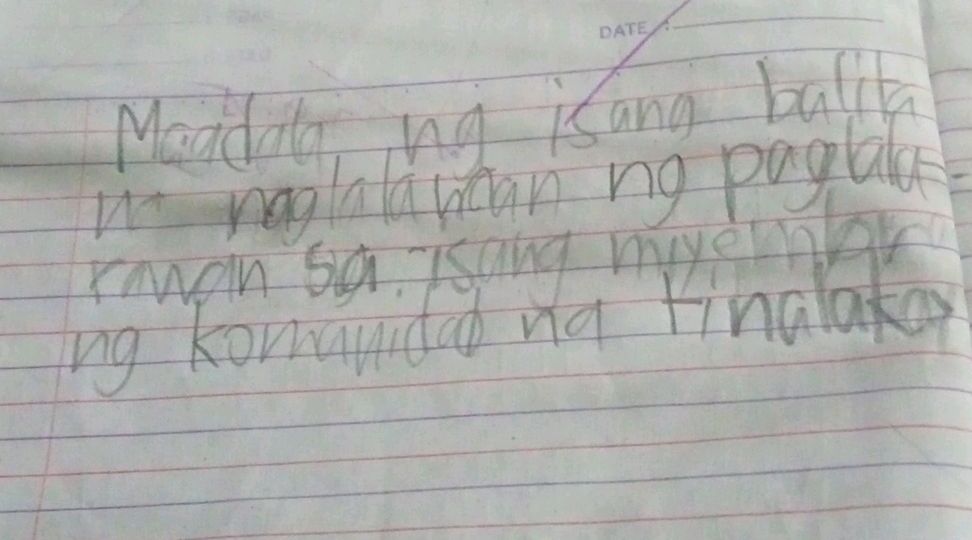 DATE :
Magdala ng isang balita
na naglalaman ng paglala-
rawan sa isang miyembro
ng komunidad na tinalakay